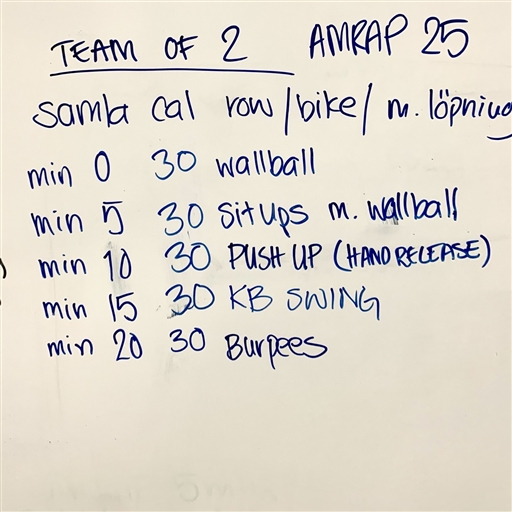 TEAM OF 2 AMRAP 25
samla cal row/bike/m. löpning
min 0 30 wallball
min 5 30 situps m. wallball
min 10 30 PUSH UP (HAND RELEASE)
min 15 30 KB SWING
min 20 30 Burpees